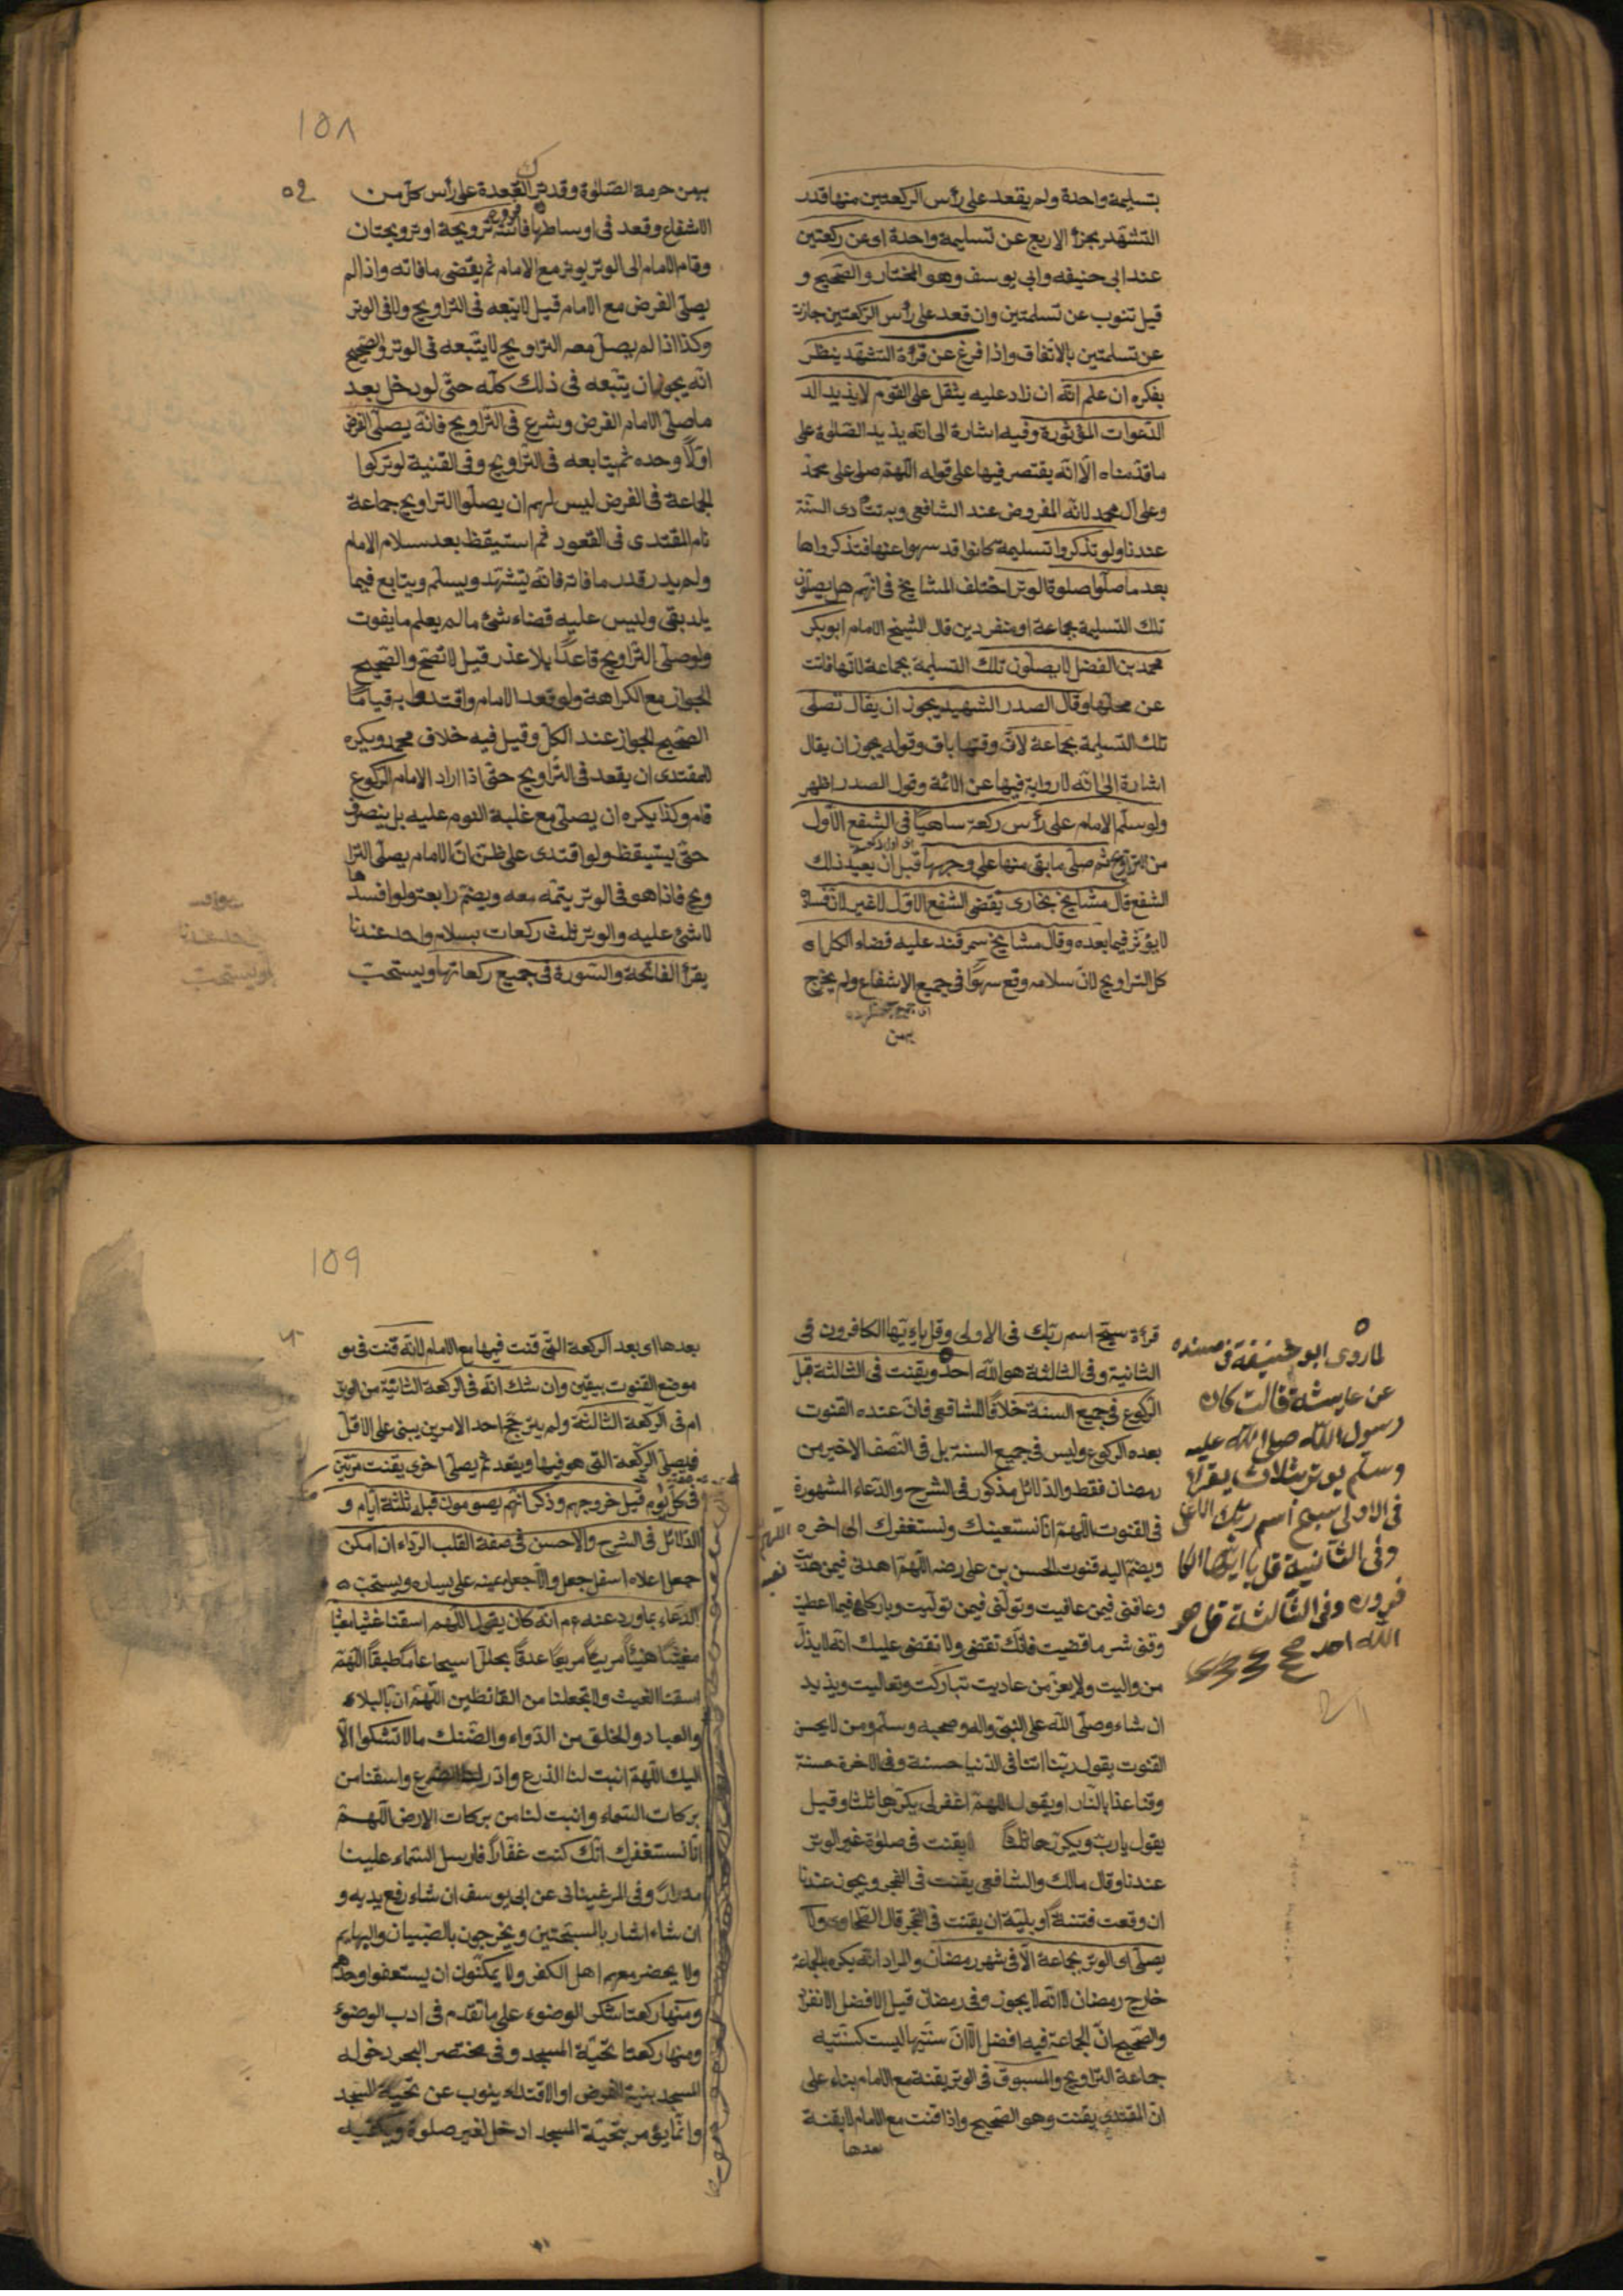 بتسليمة واحدة ولم يقعد على رأس الركعتين منها قدر
التشهد يجزأ الاربع عن تسليمة واحدة اوعن ركعتين
عند ابى حنيفه وابى يوسف وهو المختار والصحيح و
قيل تنوب عن تسلمتين وان قعد على رأس الركعتين جازت
عن تسلمتين بالاتفاق واذا فرغ عن قرأة التشهد ينظر
بفكره ان علم انه ان زاد عليه يثقل على القوم لا يذيد الد
الدعوات المؤثورة وفيه اشارة الى انه يذيد الصلوة على
ما قدمناه الا انه يقتصر فيها على قوله اللهم صلى على محمد
وعلى آل محمد لانه المفروض عند الشافعى وبه تتأدى السنة
عندنا ولو تذكروا تسليمة كانوا قد سهوا عنها فتذكرواها
بعد ما صلوا صلوة الوتر اختلف المشايخ فى انهم هل يصلون
تلك التسليمة بجماعة او منفردين قال الشيخ الامام ابو بكر
محمد بن الفضل لا يصلون تلك التسليمة بجماعة لانها فاتت
عن محلها وقال الصدر الشهيد يجوز ان يقال تصلى
تلك التسليمة بجماعة لان وقتها باق وقوله يجوز ان يقال
اشارة الى انه لا رواية فيها عن الائمة وقول الصدر اظهر
ولو سلم الامام على رأس ركعة ساهيا فى الشفع الاول
من التراويح ثم صلى ما بقى منها على وجهها قبل ان يعيد ذلك
الشفع قال مشايخ بخارى يقضى الشفع الاول لا غير لان فساده
لا يؤثر فيما بعده وقال مشايخ سمرقند عليه قضاء الكل اى
كل التراويح لان سلامه وقع سهوا فى جميع الاشفاع ولم يخرج
بهن
١٥٨
بهن حرمة الصلوة وقد ترك القعدة على رأس كل من
الاشفاع وقعد فى اوساطها فاتته ترويحة او ترويحتان
وقام الامام الى الوتر يوتر مع الامام ثم يقضى ما فاته واذا لم
يصلى الفرض مع الامام قيل لا يتبعه فى التراويح ولا فى الوتر
وكذا اذا لم يصل معه التراويح لا يتبعه فى الوتر والصحيح
انه يجوز ان يتبعه فى ذلك كله حتى لو دخل بعد
ما صلى الامام الفرض وشرع فى التراويح فانه يصلى الفرض
اولا وحده ثم يتابعه فى التراويح وفى القنية لو تركوا
الجماعة فى الفرض ليس لهم ان يصلوا التراويح جماعة
نام المقتدى فى القعود ثم استيقظ بعد سلام الامام
ولم يدر قدر ما فاته فانه يتشهد ويسلم ويتابع فيما
بقى وليس عليه قضاء شئ ما لم يعلم ما يفوت
ولو صلى التراويح قاعدا بلا عذر قيل لا تصح والصحيح
الجواز مع الكراهة ولو قعد الامام واقتدوا به قياما
الصحيح الجواز عند الكل وقيل فيه خلاف محمد ويكره
للمقتدى ان يقعد فى التراويح حتى اذا اراد الامام الركوع
قام وكذا يكره ان يصلى مع غلبة النوم عليه بل ينصرف
حتى يستيقظ ولو اقتدى على ظن ان الامام يصلى الترا
ويح فاذا هو فى الوتر يتمه معه ويضم رابعة ولو افسدها
لا شئ عليه والوتر ثلث ركعات بسلام واحد عندنا
يقرأ الفاتحة والسورة فى جميع ركعاتها ويستحب
لما روى ابو حنيفة فى مسنده
عن عايشة قالت كان
رسول الله صلى الله عليه
وسلم يوتر بثلاث يقرأ
فى الاولى سبح اسم ربك الاعلى
وفى الثانية قل يا ايها الكا
فرون وفى الثالثة قل هو
الله احد
قرأة سبح اسم ربك فى الاولى وقل يا ايها الكافرون فى
الثانية وفى الثالثة هو الله احد ويقنت فى الثالثة قبل
الركوع فى جميع السنة خلافا للشافعى فان عنده القنوت
بعده الركوع وليس فى جميع السنة بل فى النصف الاخير من
رمضان فقط والدلائل مذكور فى الشرح والدعاء المشهورة
فى القنوت اللهم انا نستعينك ونستغفرك الى اخره
ويضم اليه قنوت الحسن بن على رضه اللهم اهدنى فيمن هديت
وعافنى فيمن عافيت وتولنى فيمن توليت وبارك لى فيما اعطيت
وقنى شر ما قضيت فانك تقضى ولا تقضى عليك انه لا يذل
من واليت ولا يعز من عاديت تباركت وتعاليت ويذيد
ان شاء وصلى الله على النبى واله وصحبه وسلم ومن لا يحسن
القنوت يقول ربنا اتنا فى الدنيا حسنة وفى الاخرة حسنة
وقنا عذاب النار او يقول اللهم اغفر لى يكررها ثلثا وقيل
يقول يا رب ويكررها ثلثا لا يقنت فى صلوة غير الوتر
عندنا وقال مالك والشافعى يقنت فى الفجر ويجوز عندنا
ان وقعت فتنة او بلية ان يقنت فى الفجر قال الطحاوى ولا
يصلى اى الوتر بجماعة الا فى شهر رمضان والمراد انه يكره بالجماعة
خارج رمضان لا انه لا يجوز وفى رمضان قيل الافضل الانفراد
والصحيح ان الجماعة فيه افضل الا ان سنتيها ليست كسنتيه
جماعة التراويح والمسبوق فى الوتر يقنت مع الامام بناء على
ان المقتدى يقنت وهو الصحيح واذا قنت مع الامام لا يقنت
بعدها
١٥٩
بعدها اى بعد الركعة التى قنت فيها مع الامام لانه قنت فى
موضع القنوت بيقين وان شك انه فى الركعة الثانية من الوتر
ام فى الركعة الثالثة ولم يترجح احد الامرين يبنى على الاقل
فيصلى الركعة التى هو فيها ويقعد ثم يصلى اخرى يقنت مرتين
فى كل يوم قبل خروجهم وذكر انهم يصومون قبله ثلثة ايام و
الدلائل فى الشرح والاحسن فى صفة القلب الرداء ان امكن
جعل اعلاه اسفل جعل والا جعل يمينه على يساره ويستحب
الدعاء بما ورد عنه عم انه كان يقول اللهم اسقنا غيثا
مغيثا هنيئا مريئا مريعا غدقا مجللا سيحا عاما طبقا اللهم
اسقنا الغيث ولا تجعلنا من القانطين اللهم ان بالبلاد
والعباد والخلق من الدواء والضنك ما لا نشكوا الا
اليك اللهم انبت لنا الذرع وادر لنا الضرع واسقنا من
بركات السماء وانبت لنا من بركات الارض اللهم
انا نستغفرك انك كنت غفارا فارسل السماء علينا
مدرارا وفى المرغينانى عن ابى يوسف ان شاء رفع يديه و
ان شاء اشار بالمسبحتين ويخرجون بالصبيان والبهايم
ولا يحضر معهم اهل الكفر ولا يمكنون ان يستعفوا وحدهم
ومنها ركعتا شكر الوضوء على ما تقدم فى ادب الوضوء
ومنها ركعتا تحية المسجد وفى مختصر البحر دخوله
المسجد بنية الفرض او الاقتداء ينوب عن تحية المسجد
وانما يؤمر بتحية المسجد اذ دخل لغير صلوة ويكفيه